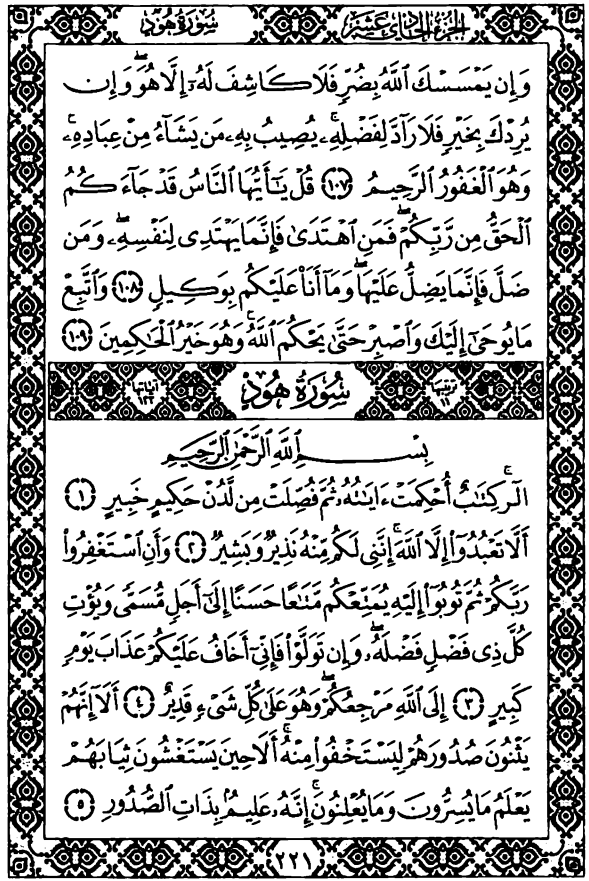 الجزء الحادي عشر
سورة هود
وَإِن يَمْسَسْكَ ٱللَّهُ بِضُرٍّ فَلَا كَاشِفَ لَهُۥٓ إِلَّا هُوَ ۖ وَإِن
يُرِدْكَ بِخَيْرٍ فَلَا رَآدَّ لِفَضْلِهِۦ ۚ يُصِيبُ بِهِۦ مَن يَشَآءُ مِنْ عِبَادِهِۦ ۚ
وَهُوَ ٱلْغَفُورُ ٱلرَّحِيمُ ١٠٧ قُلْ يَٰٓأَيُّهَا ٱلنَّاسُ قَدْ جَآءَكُمُ
ٱلْحَقُّ مِن رَّبِّكُمْ ۖ فَمَنِ ٱهْتَدَىٰ فَإِنَّمَا يَهْتَدِى لِنَفْسِهِۦ ۖ وَمَن
ضَلَّ فَإِنَّمَا يَضِلُّ عَلَيْهَا ۖ وَمَآ أَنَا۠ عَلَيْكُم بِوَكِيلٍ ١٠٨ وَٱتَّبِعْ
مَا يُوحَىٰٓ إِلَيْكَ وَٱصْبِرْ حَتَّىٰ يَحْكُمَ ٱللَّهُ ۚ وَهُوَ خَيْرُ ٱلْحَٰكِمِينَ ١٠٩
سُورَةُ هُودٍ
آياتها ١٢٣
بِسْمِ ٱللَّهِ ٱلرَّحْمَٰنِ ٱلرَّحِيمِ
الٓر ۚ كِتَٰبٌ أُحْكِمَتْ ءَايَٰتُهُۥ ثُمَّ فُصِّلَتْ مِن لَّدُنْ حَكِيمٍ خَبِيرٍ ١
أَلَّا تَعْبُدُوٓا۟ إِلَّا ٱللَّهَ ۚ إِنَّنِى لَكُم مِّنْهُ نَذِيرٌ وَبَشِيرٌ ٢ وَأَنِ ٱسْتَغْفِرُوا۟
رَبَّكُمْ ثُمَّ تُوبُوٓا۟ إِلَيْهِ يُمَتِّعْكُم مَّتَٰعًا حَسَنًا إِلَىٰٓ أَجَلٍ مُّسَمًّى وَيُؤْتِ
كُلَّ ذِى فَضْلٍ فَضْلَهُۥ ۖ وَإِن تَوَلَّوْا۟ فَإِنِّىٓ أَخَافُ عَلَيْكُمْ عَذَابَ يَوْمٍ
كَبِيرٍ ٣ إِلَى ٱللَّهِ مَرْجِعُكُمْ ۖ وَهُوَ عَلَىٰ كُلِّ شَىْءٍ قَدِيرٌ ٤ أَلَآ إِنَّهُمْ
يَثْنُونَ صُدُورَهُمْ لِيَسْتَخْفُوا۟ مِنْهُ ۚ أَلَا حِينَ يَسْتَغْشُونَ ثِيَابَهُمْ
يَعْلَمُ مَا يُسِرُّونَ وَمَا يُعْلِنُونَ ۚ إِنَّهُۥ عَلِيمٌۢ بِذَاتِ ٱلصُّدُورِ ٥
٢٢١